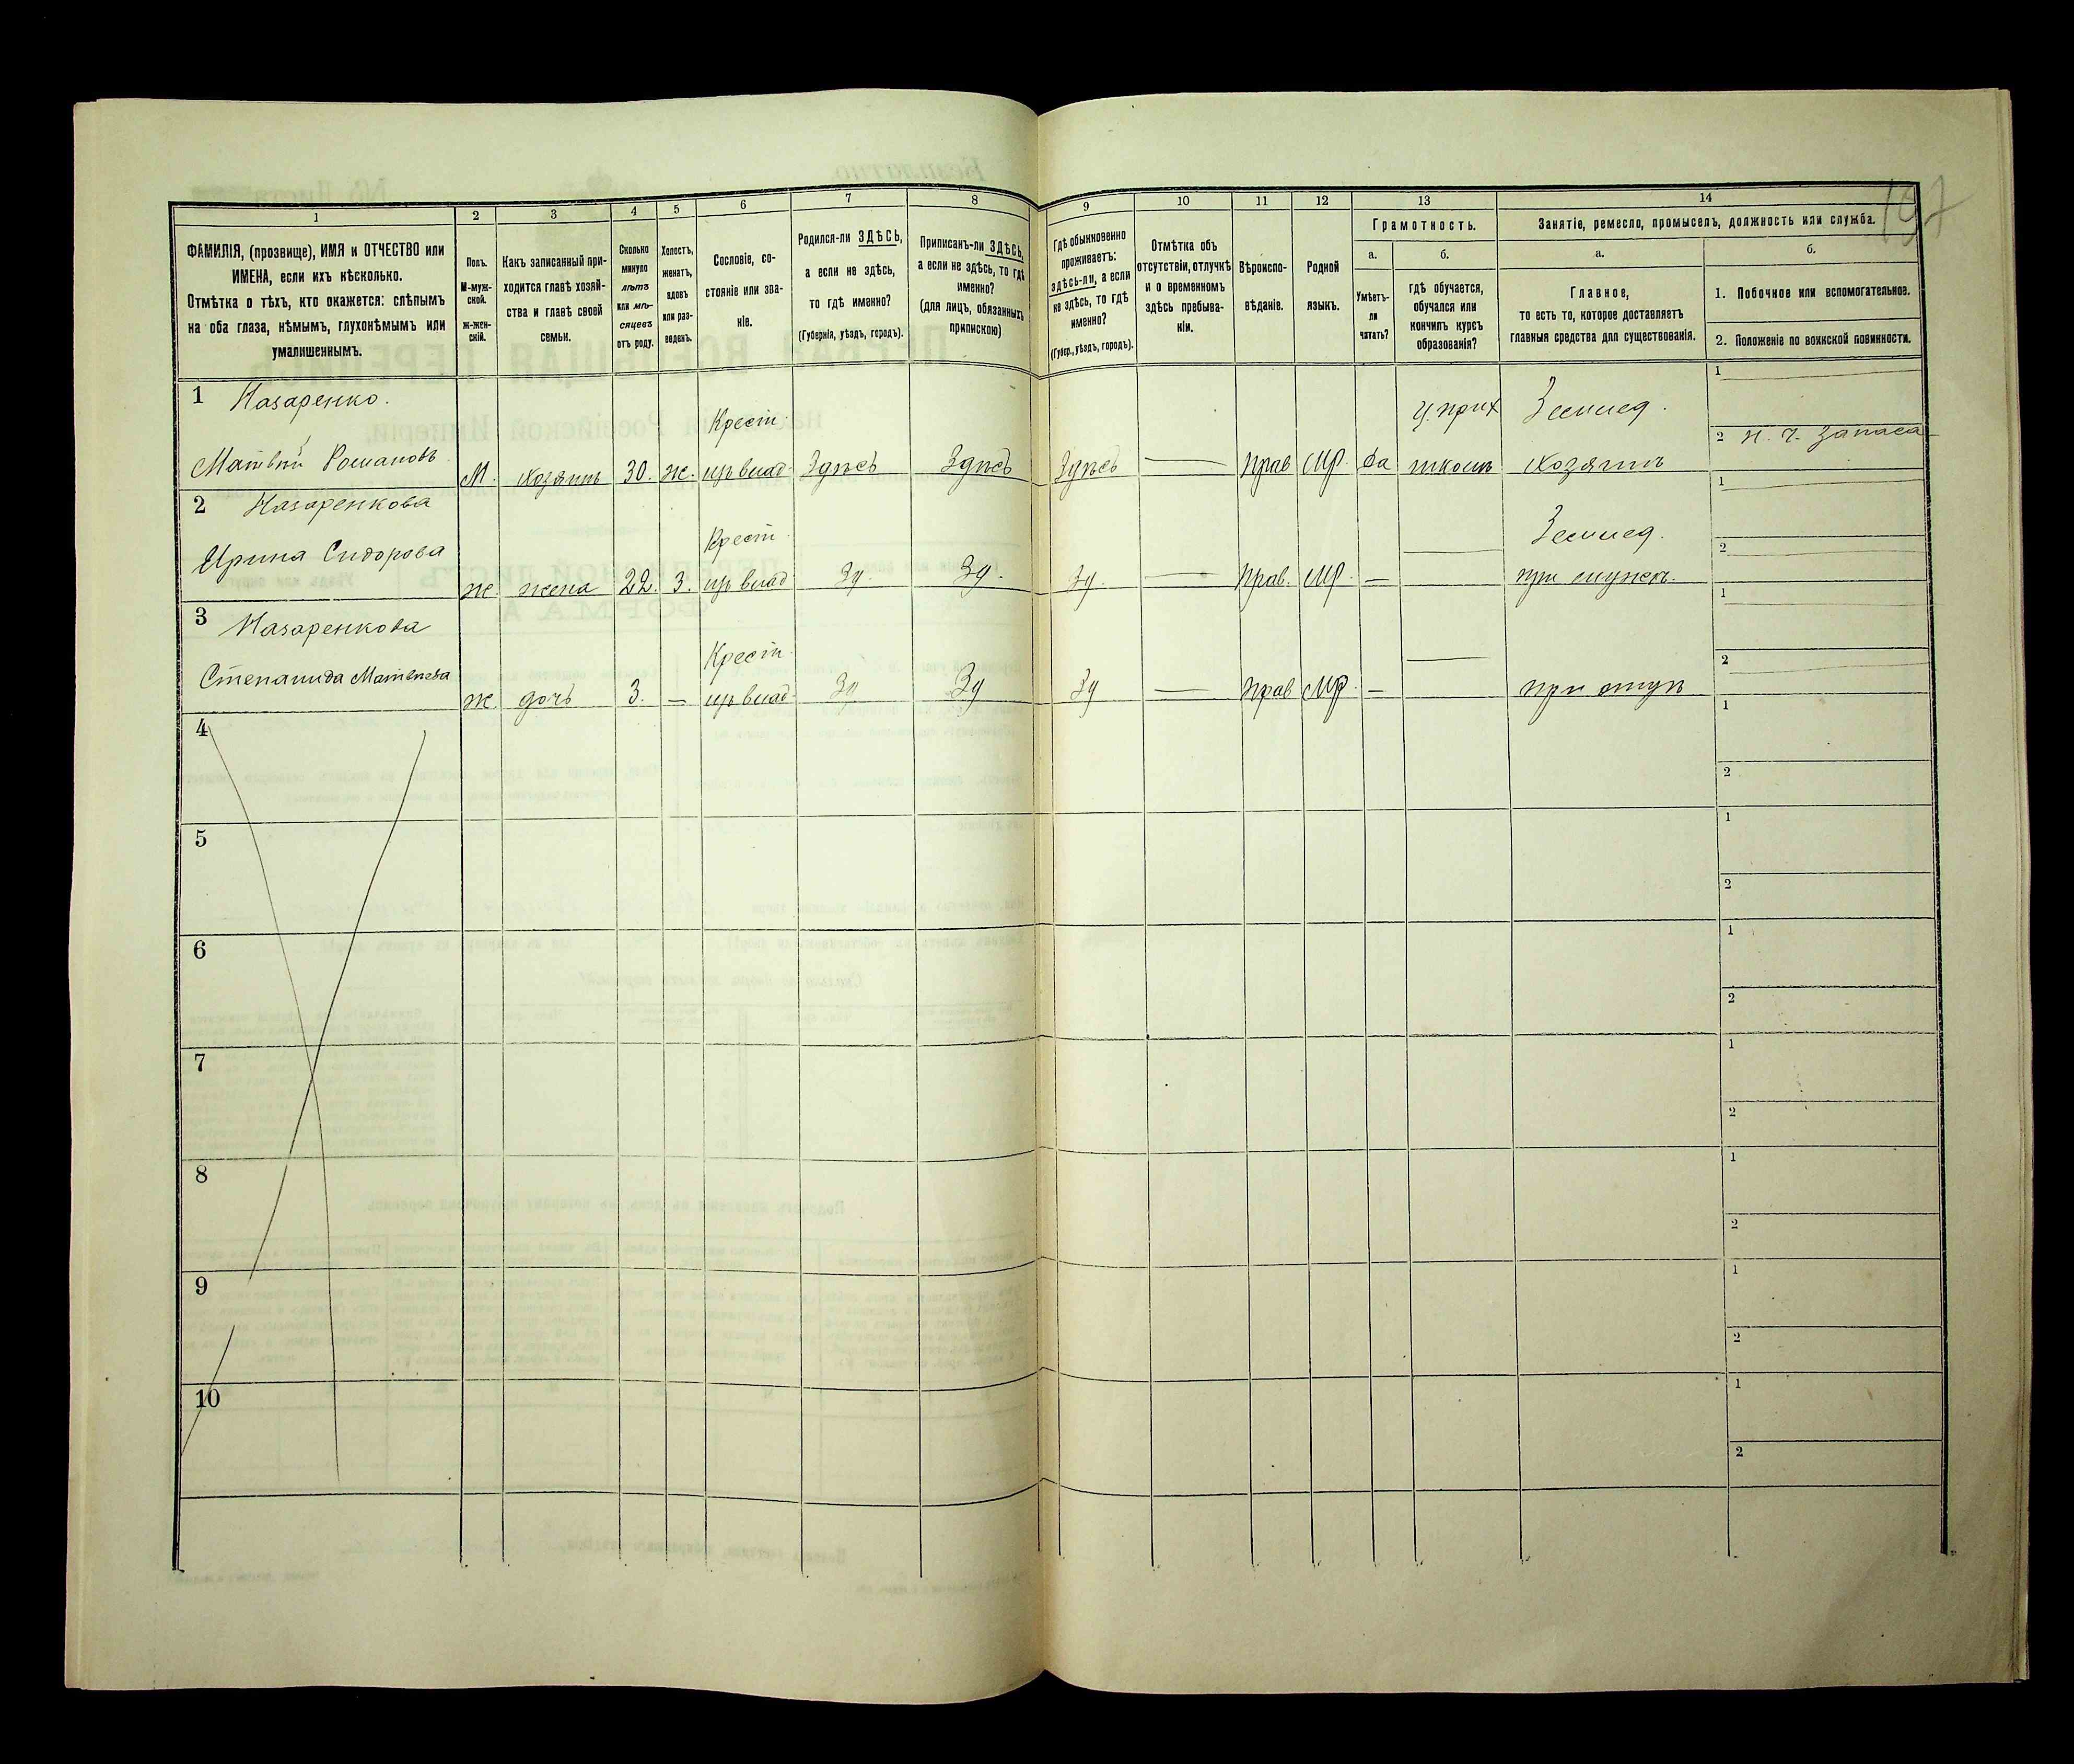 197
1 2 3 4 5 6 7 8 9 10 11 12 13 14
ФАМИЛІЯ, (прозвище), ИМЯ и ОТЧЕСТВО или
ИМЕНА, если ихъ нѣсколько.
Отмѣтка о тѣхъ, кто окажется: слѣпымъ
на оба глаза, нѣмымъ, глухонѣмымъ или
умалишеннымъ.
Полъ.
М-муж-
ской.
Ж-жен-
скій.
Какъ записанный при-
ходится главѣ хозяй-
ства и главѣ своей
семьи.
Сколько
минуло
лѣтъ
или мѣ-
сяцевъ
отъ роду.
Холостъ,
женатъ,
вдовъ
или раз-
веденъ.
Сословіе, со-
стояніе или зва-
ніе.
Родился-ли ЗДѢСЬ,
а если не здѣсь,
то гдѣ именно?
(Губернія, уѣздъ, городъ).
Приписанъ-ли ЗДѢСЬ,
а если не здѣсь, то гдѣ
именно?
(для лицъ, обязанныхъ
припискою)
Гдѣ обыкновенно
проживаетъ:
здѣсь-ли, а если
не здѣсь, то гдѣ
именно?
(Губер., уѣздъ, городъ).
Отмѣтка объ
отсутствіи, отлучкѣ
и о временномъ
здѣсь пребыва-
ніи.
Вѣроиспо-
вѣданіе.
Родной
языкъ.
Грамотность.
а.
Умѣетъ-
ли
читать?
б.
гдѣ обучается,
обучался или
кончилъ курсъ
образованія?
Занятіе, ремесло, промыселъ, должность или служба.
а.
Главное,
то есть то, которое доставляетъ
главныя средства для существованія.
б.
1. Побочное или вспомогательное.
2. Положеніе по воинской повинности.
1 Назаренко.
Матвѣй Романовъ
М. хозяинъ 30. ж.
Крест.
изъ влад.
Здѣсь Здѣсь Здѣсь — Прав Мр. да
Ц. прих
школѣ
Землед.
Хозяинъ
1
2 н. ч. запаса
2 Назаренкова
Ирина Сидорова
ж. жена 22. З.
Крест.
изъ влад
Зд. Зд. Зд. — Прав. Мр. — —
Землед.
при мужѣ.
1
2
3 Назаренкова
Степанида Матвѣева
ж. дочь 3. —
Крест.
изъ влад
Зд Зд Зд — Прав Мр. — —
при отцѣ
1
2
4
1
2
5
1
2
6
1
2
7
1
2
8
1
2
9
1
2
10
1
2